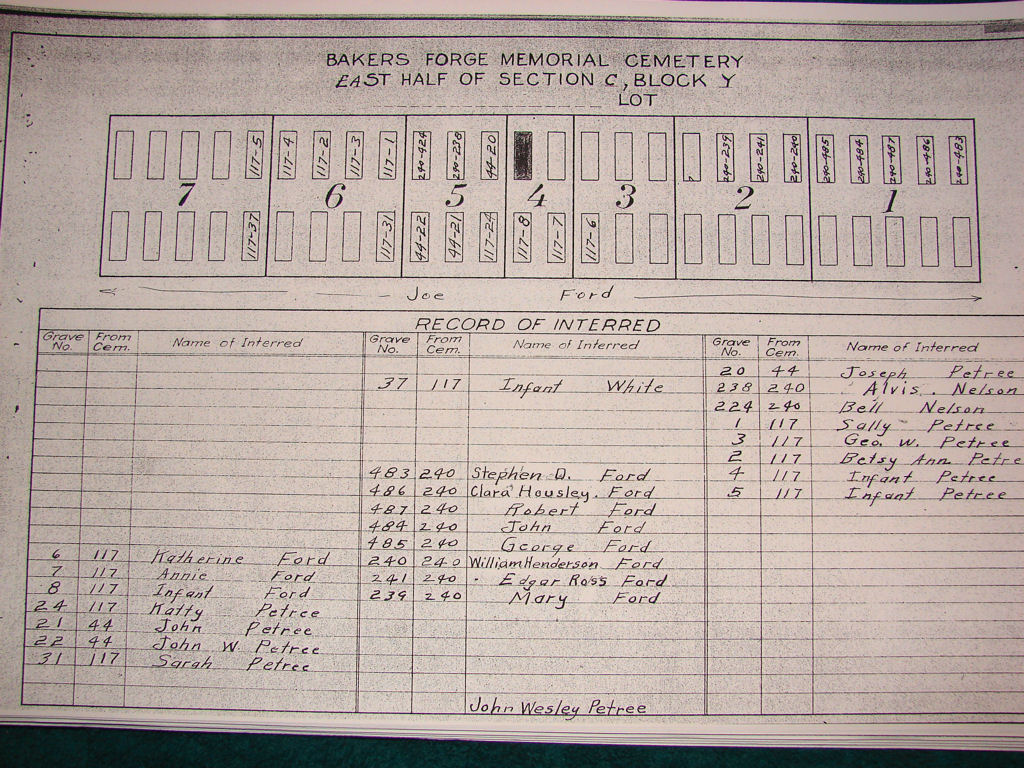 BAKERS FORGE MEMORIAL CEMETERY
EAST HALF OF SECTION C, BLOCK Y
LOT
117-5 117-4 117-2 117-3 117-1 240-224 240-238 44-20 ? 240-239 240-241 240-240 240-485 240-484 240-487 240-486 240-483
7 6 5 4 3 2 1
117-37 117-31 44-22 44-21 117-24 117-8 117-7 117-6
Joe Ford
RECORD OF INTERRED
Grave No. From Cem. Name of Interred
6 117 Katherine Ford
7 117 Annie Ford
8 117 Infant Ford
24 117 Katty Petree
21 44 John Petree
22 44 John W. Petree
31 117 Sarah Petree
Grave No. From Cem. Name of Interred
37 117 Infant White
483 240 Stephen D. Ford
486 240 Clara Housley. Ford
487 240 Robert Ford
484 240 John Ford
485 240 George Ford
240 240 William Henderson Ford
241 240 Edgar Ross Ford
239 240 Mary Ford
John Wesley Petree
Grave No. From Cem. Name of Interred
20 44 Joseph Petree
238 240 Alvis. Nelson
224 240 Bell Nelson
1 117 Sally Petree
3 117 Geo. W. Petree
2 117 Betsy Ann Petre
4 117 Infant Petree
5 117 Infant Petree